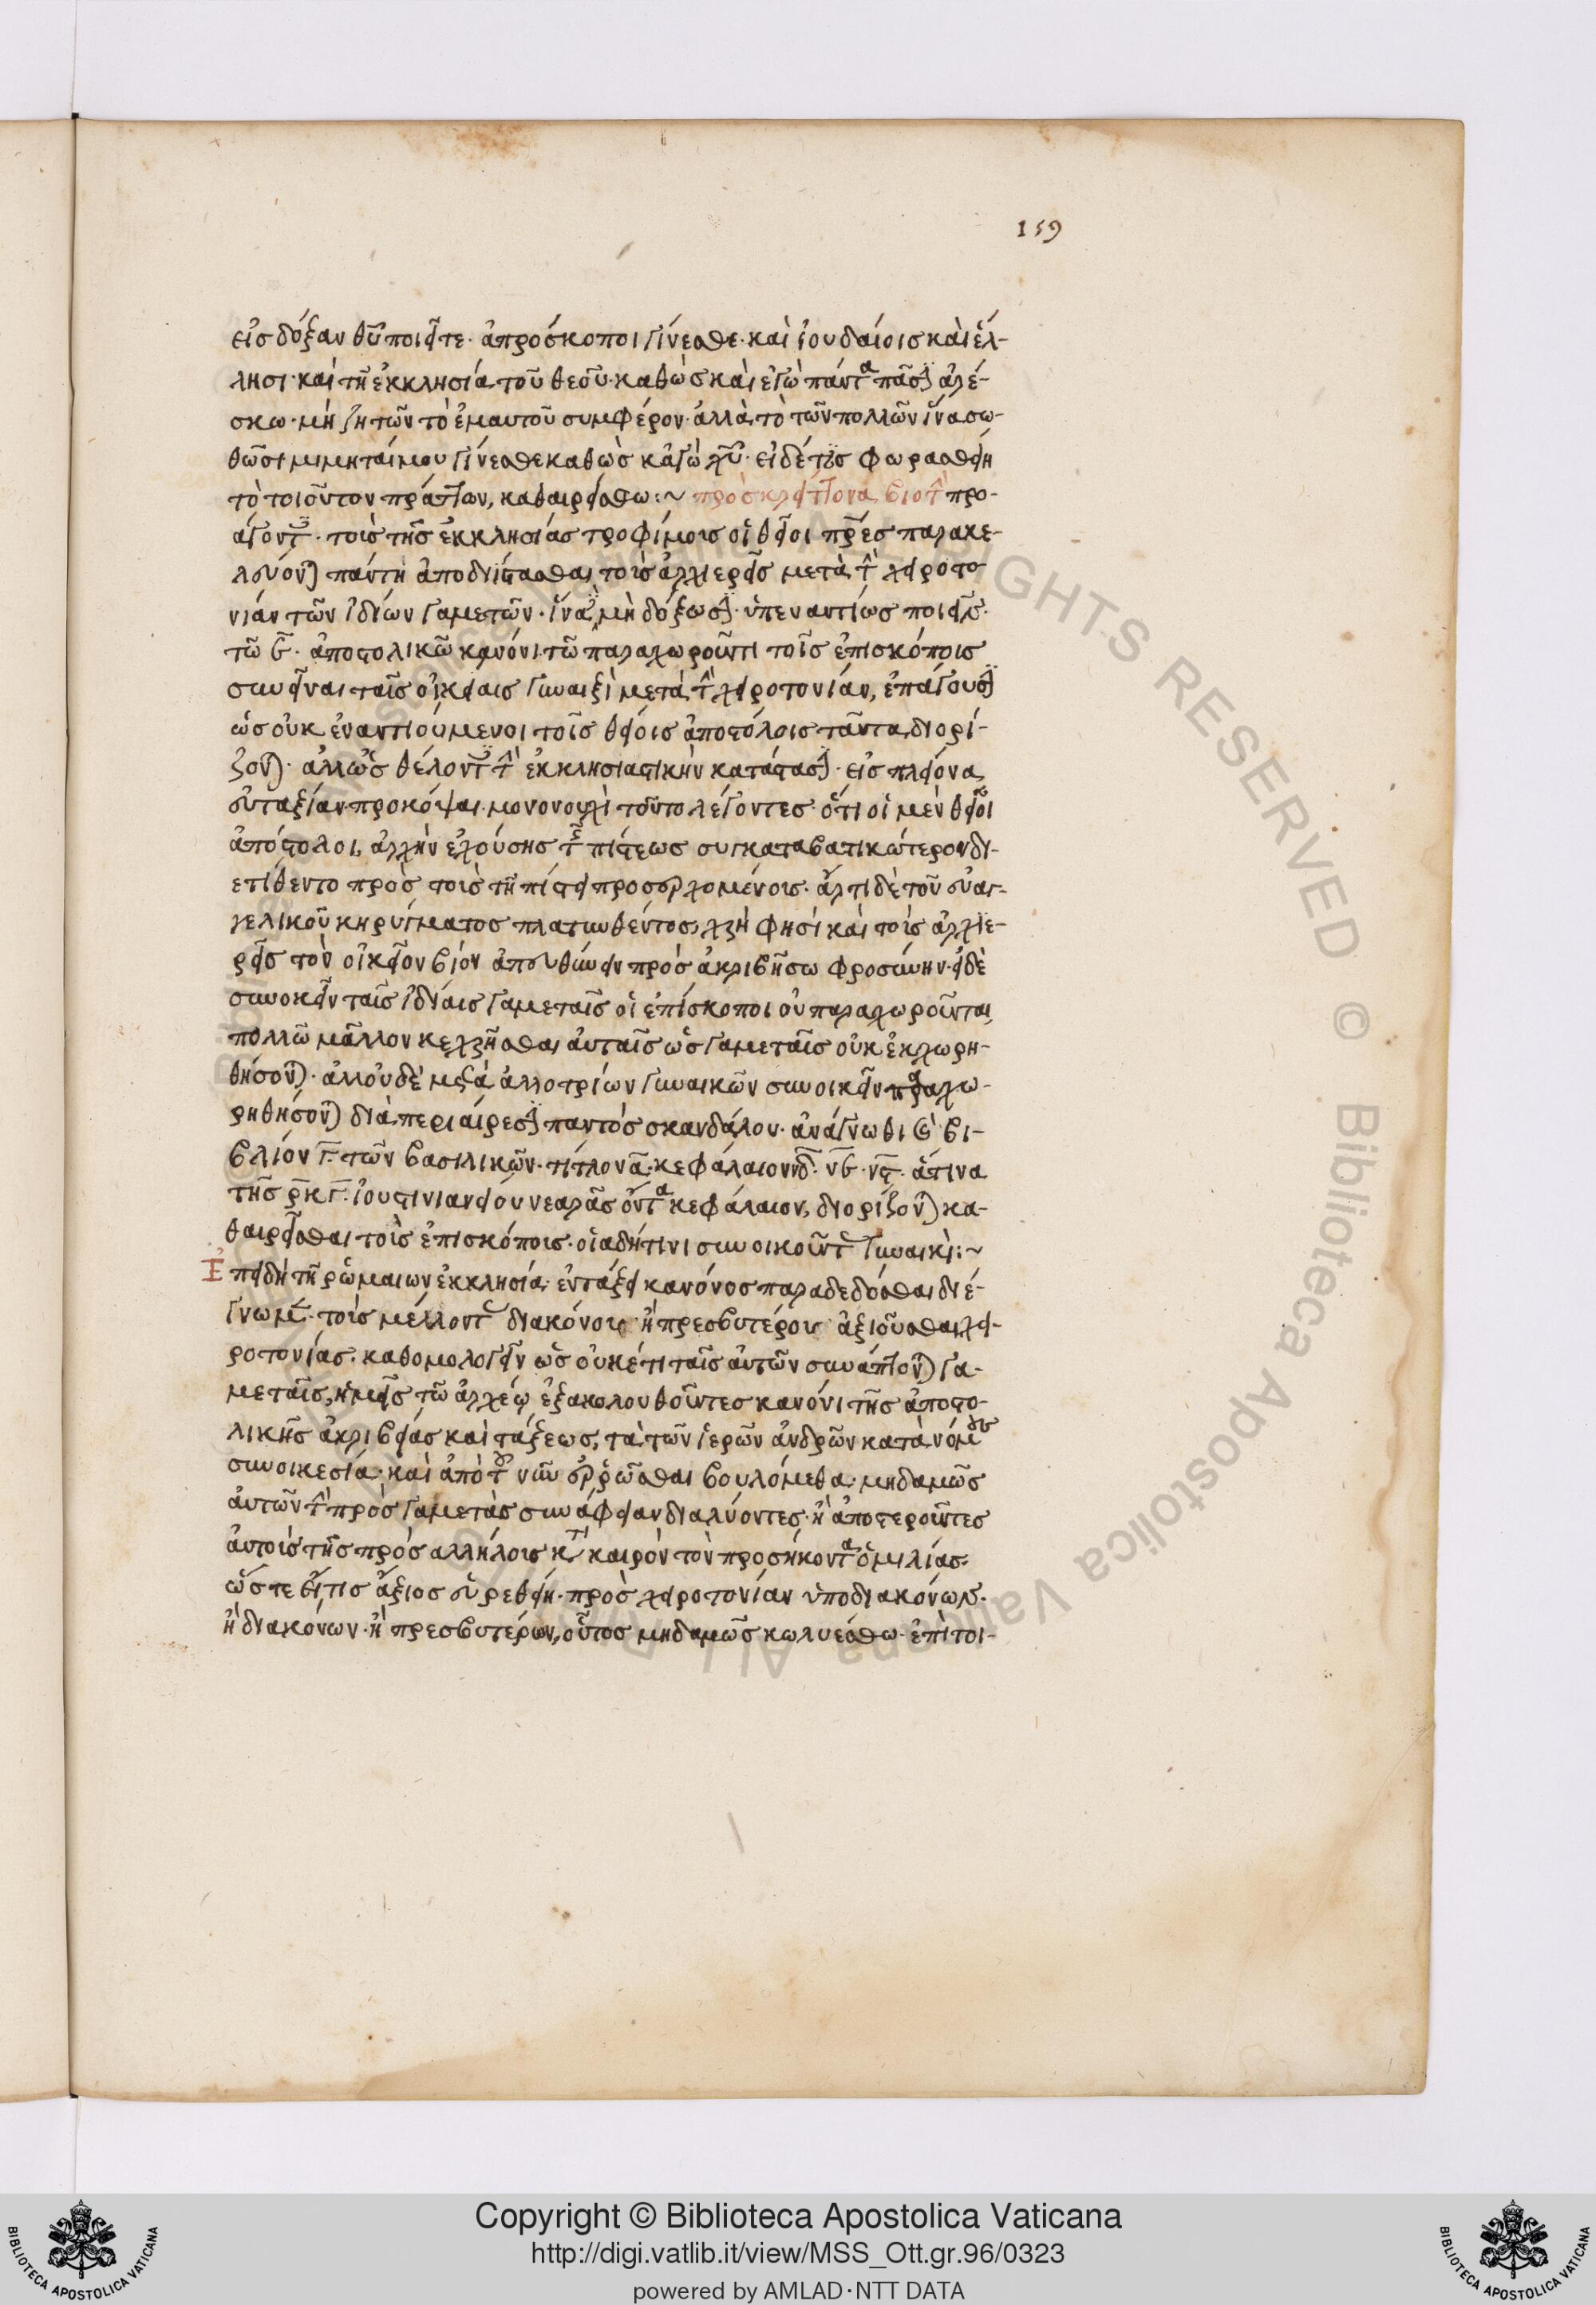 159
εἰς δόξαν θυ ποιεῖτε· ἀπρόσκοποι γίνεσθε· καὶ ἰουδαίοις καὶ ἕλ-
λησι· καὶ τῆ ἐκκλησία τοῦ θεοῦ· καθὼς καὶ ἐγὼ πάντα πᾶσιν ἀρέ-
σκω· μὴ ζητῶν τὸ ἐμαυτοῦ συμφέρον· ἀλλὰ τὸ τῶν πολλῶν ἵνα σω-
θῶσι μιμηταί μου γίνεσθε καθὼς κἀγὼ χυ· εἰ δέ τις φωραθείη
τὸ τοιοῦτον πράττων, καθαιρείσθω:~ πρὸς κρείττονα βίον τὴν προ-
άγοντες· τοὺς τῆς ἐκκλησίας τροφίμους οἱ θεῖοι πρες παρακε-
λεύονται πάντη ἀποδιίστασθαι τοὺς ἀρχιερεῖς μετὰ τὴν χειροτο-
νίαν τῶν ἰδίων γαμετῶν· ἵνα μὴ δόξωσιν ὑπεναντίως ποιεῖν
τῶ ϛ· ἀποστολικῶ κανόνι τῶ παραχωροῦντι τοῖς ἐπισκόποις
συνεῖναι ταῖς οἰκείαις γυναιξὶ μετὰ τὴν χειροτονίαν, ἐπάγουσιν
ὡς οὐκ ἐναντιούμενοι τοῖς θείοις ἀποστόλοις ταῦτα διορί-
ζονται· ἀλλ' ὡς θέλοντες τὴν ἐκκλησιαστικὴν κατάστασιν· εἰς πλείονα
εὐταξίαν προκόψαι· μονονουχὶ τοῦτο λέγοντες· ὅτι οἱ μὲν θεῖοι
ἀπόστολοι, ἀρχὴν ἐχούσης τῆς πίστεως συγκαταβατικώτερον δι-
ετίθεντο πρὸς τοὺς τῆ πίστει προσερχομένους· ἄρτι δὲ τοῦ εὐαγ-
γελικοῦ κηρύγματος πλατυνθέντος, χρή φησι καὶ τοὺς ἀρχιε-
ρεῖς τὸν οἰκεῖον βίον ἀπευθύνειν πρὸς ἀκριβῆ σωφροσύνην· εἰ δὲ
συνοικεῖν ταῖς ἰδίαις γαμεταῖς οἱ ἐπίσκοποι οὐ παραχωροῦνται
πολλῶ μᾶλλον κεχρῆσθαι αὐταῖς ὡς γαμεταῖς οὐκ ἐκχωρη-
θήσονται· ἀλλ' οὐδὲ μετὰ ἀλλοτρίων γυναικῶν συνοικεῖν παραχω-
ρηθήσονται διὰ περιαίρεσιν παντὸς σκανδάλου· ἀνάγνωθι καὶ βι-
βλίον γ· τῶν βασιλικῶν· τίτλον α· κεφάλαιον νδ· νϛ· νζ· ἅτινα
τῆς ρκγ· ἰουστινιανείου νεαρᾶς ὄντα κεφάλαιον, διορίζονται κα-
θαιρεῖσθαι τοὺς ἐπισκόπους· οἱαδήτινι συνοικοῦντας γυναικί:~
Ἐπειδὴ τῆ ῥωμαίων ἐκκλησία ἐν τάξει κανόνος παραδεδόσθαι διέ-
γνωμεν· τοὺς μέλλοντας διακόνου ἢ πρεσβυτέρου ἀξιοῦσθαι χει-
ροτονίας· καθομολογεῖν ὡς οὐκέτι ταῖς αὐτῶν συνάπτονται γα-
μεταῖς, ἡμεῖς τῶ ἀρχείω ἐξακολουθοῦντες κανόνι τῆς ἀποστο-
λικῆς ἀκριβείας καὶ τάξεως, τὰ τῶν ἱερῶν ἀνδρῶν κατὰ νόμους
συνοικέσια καὶ ἀπὸ τοῦ νῦν ἐρρῶσθαι βουλόμεθα· μηδαμῶς
αὐτῶν τὴν πρὸς γαμετὰς συνάφειαν διαλύοντες· ἢ ἀποστεροῦντες
αὐτοὺς τῆς πρὸς ἀλλήλους κατὰ καιρὸν τὸν προσήκοντα ὁμιλίας·
ὥστε εἴ τις ἄξιος εὑρεθείη· πρὸς χειροτονίαν ὑποδιακόνων·
ἢ διακόνων· ἢ πρεσβυτέρων, οὗτος μηδαμῶς κωλυέσθω· ἐπὶ τοι-
Copyright © Biblioteca Apostolica Vaticana
http://digi.vatlib.it/view/MSS_Ott.gr.96/0323
powered by AMLAD·NTT DATA
BIBLIOTECA APOSTOLICA VATICANA
BIBLIOTECA APOSTOLICA VATICANA
Biblioteca Apostolica Vaticana ALL RIGHTS RESERVED ©